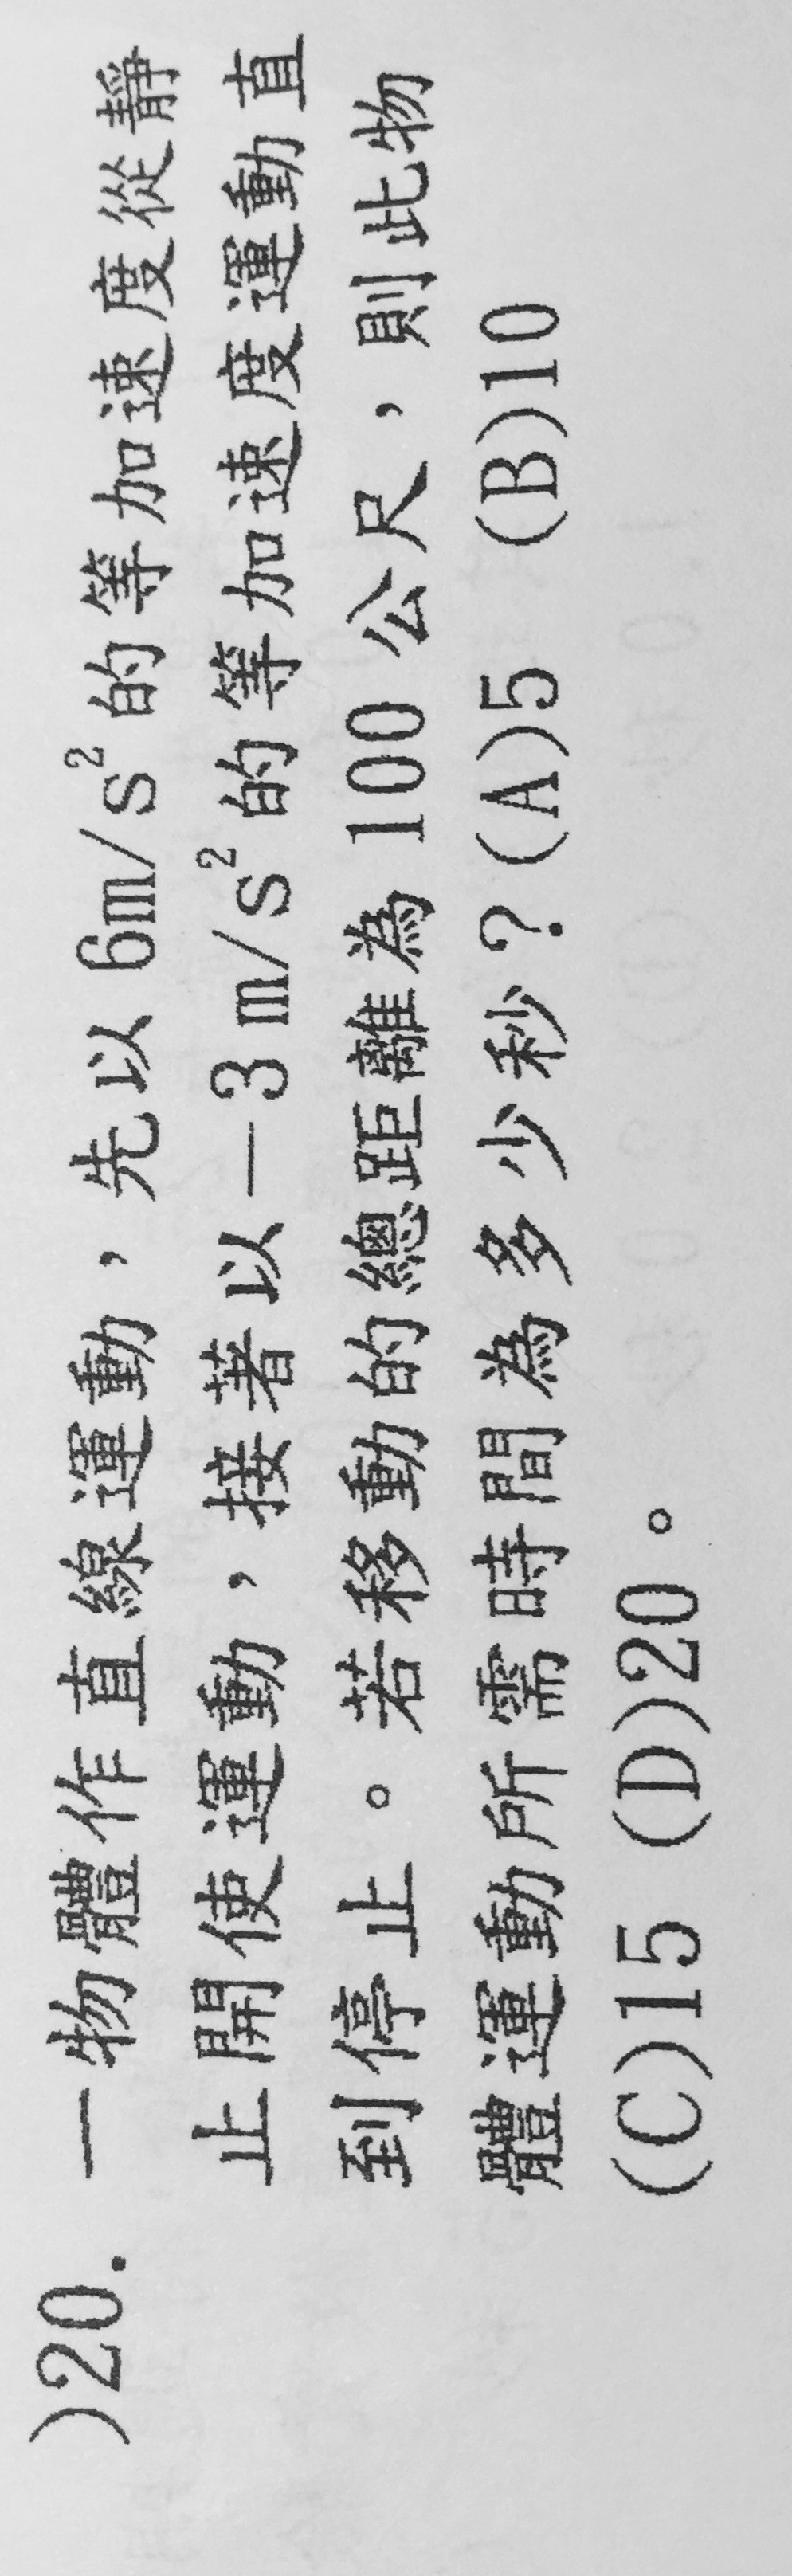 )20. 一物體作直線運動，先以 6m/s²的等加速度從靜
止開使運動，接著以－3 m/s²的等加速度運動直
到停止。若移動的總距離為 100 公尺，則此物
體運動所需時間為多少秒？(A)5 (B)10
(C)15 (D)20。